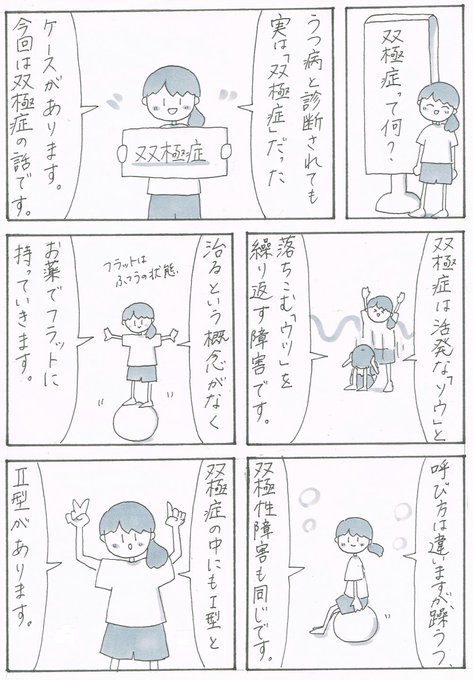 双極症って何？
うつ病と診断されても
実は「双極症」だった
双極症
ケースがあります。
今回は双極症の話です。
双極症は活発な「ソウ」と
落ちこむ「ウツ」を
繰り返す障害です。
治るという概念がなく
フラットは
ふつうの状態
お薬でフラットに
持っていきます。
呼び方は違いますが、躁うつ、
双極性障害も同じです。
双極症の中にもⅠ型と
Ⅱ型があります。